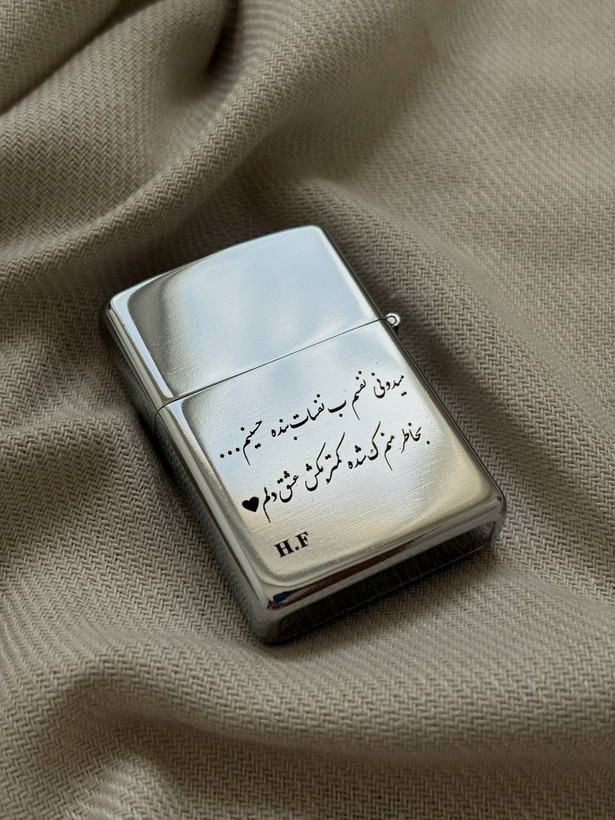 میدونی نفسم ب نفسات بنده حسینم...
بخاطر منم ک شده کمتر بکش عشق دلم♥
H.F